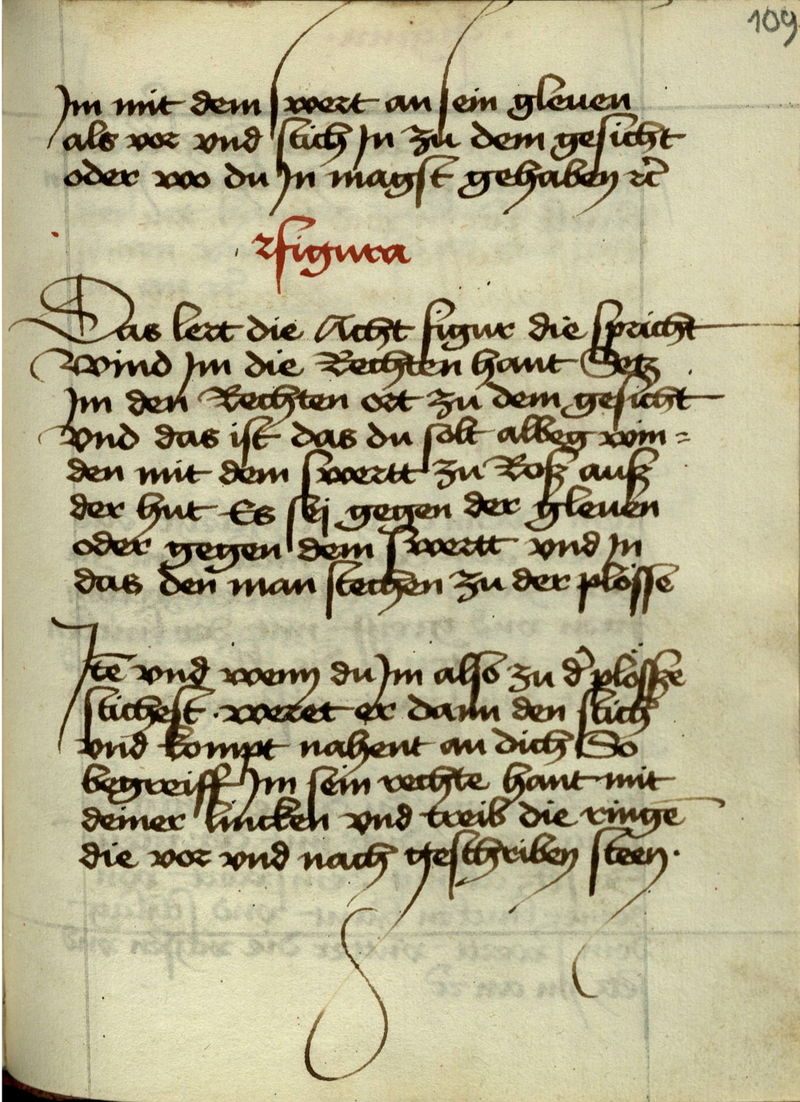 109
Jm mit dem swert an sein gleuen
als vor vnd stich Jn zu dem gesicht
oder wo du Jn magst gehaben rc̄
figura
Das lert die Acht figur die spricht
Wind Jm die Rechten hant Setz
Jm den Rechten ort zu dem gesicht
Vnd das ist das du solt albeg win=
den mit dem swertt zu Roß auß
der hut Es sej gegen der gleuen
oder gegen dem swertt vnd Jn
das den man stechen zu der plösse
Jtē vnd wenn du Jm also zu d̓ plösße
stichest · weret er dann den stich
vnd kompt nahent an dich So
begreiff Jm sein rechte hant mit
deiner lincken vnd treib die ringē
die vor vnd nach geschriben steen ·